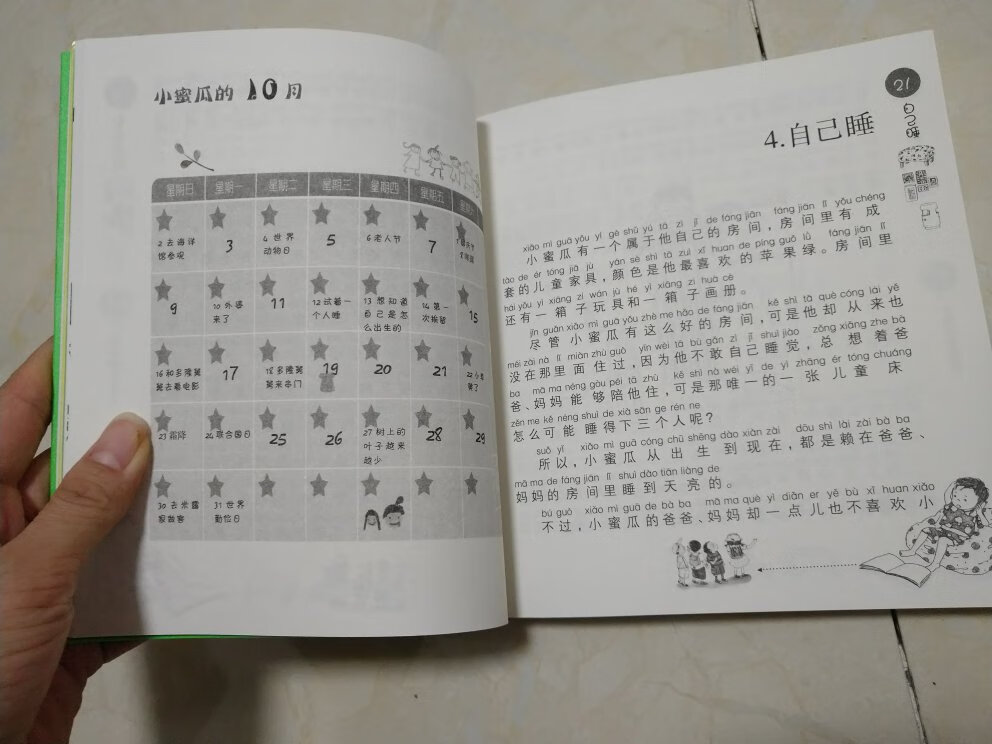 小蜜瓜的 10月
星期日 星期一 星期二 星期三 星期四 星期五
2 去海洋
馆参观
3
4 世界
动物日
5
6 老人节
7
9
10 外婆
来了
11
12 试着一
个人睡
13 想知道
自己是怎
么出生的
14 第一
次挨留
15
16 和多隆舅
舅去看电影
17
18 多隆舅
舅来串门
19
20
21
23 霜降
24 联合国日
25
26
27 树上的
叶子越来
越少
28
29
30 去米露
31 世界
勤俭日
21
自己睡
4.自己睡
xiǎo mì guā yǒu yí gè shǔ yú tā zì jǐ de fáng jiān fáng jiān lǐ yǒu chéng
小蜜瓜有一个属于他自己的房间，房间里有成
tào de ér tóng jiā jù yán sè shì tā zuì xǐ huan de píng guǒ lǜ fáng jiān lǐ
套的儿童家具，颜色是他最喜欢的苹果绿。房间里
hái yǒu yì xiāng zi wán jù hé yì xiāng zi huà cè
还有一箱子玩具和一箱子画册。
jǐn guǎn xiǎo mì guā yǒu zhè me hǎo de fáng jiān kě shì tā què cóng lái yě
尽管小蜜瓜有这么好的房间，可是他却从来也
méi zài nà lǐ miàn zhù guò yīn wèi tā bù gǎn zì jǐ shuì jiào zǒng xiǎng zhe bà
没在那里面住过，因为他不敢自己睡觉，总想着爸
ba mā ma néng gòu péi tā zhù kě shì nà wéi yī de yì zhāng ér tóng chuáng
爸、妈妈能够陪他住，可是那唯一的一张儿童床
zěn me kě néng shuì de xià sān gè rén ne
怎么可能睡得下三个人呢？
suǒ yǐ xiǎo mì guā cóng chū shēng dào xiàn zài dōu shì lài zài bà ba
所以，小蜜瓜从出生到现在，都是赖在爸爸、
mā ma de fáng jiān lǐ shuì dào tiān liàng de
妈妈的房间里睡到天亮的。
bú guò xiǎo mì guā de bà ba mā ma què yì diǎn er yě bù xǐ huan xiǎo
不过，小蜜瓜的爸爸、妈妈却一点儿也不喜欢小